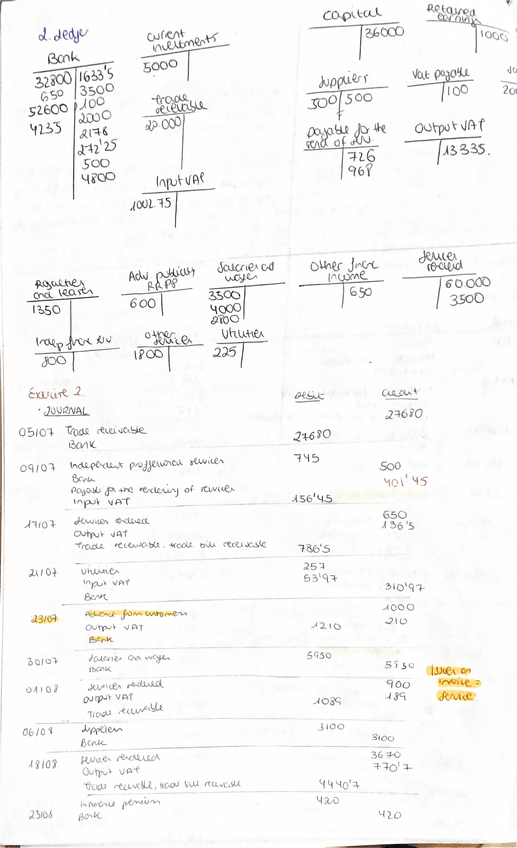 2. Ledge
Bank
32800 1633'5
650 3500
52600 100
4235 2000
2178
272'25
500
4800
Current investments
5000
Trade receivable
22000
Input VAT
1002.75
Capital
36000
Retained earnings
1000
Suppliers
500 500
Vat payable
100
Payable for the rend of
726
968
Output VAT
13335.
Royalties and leases
1350
Adv publicity RRPP
600
Salaries and wages
3500
4000
2800
Other finc income
650
Services rendered
60.000
3500
800
Other services
1800
Utilities
225
Exercise 2.
· JOURNAL
Debit Credit
27680
05/07 Trade receivable
Bank 27680
09/07 Independent proffesional services 745
Bank 500
Payable for the rendering of services 401'45
Input VAT 156'45
17/07 Services rendered 650
Output VAT 136'5
Trade receivable, trade bills receivable 786'5
21/07 Utilities 257
Input VAT 53'97
Bank 310'97
23/07 Advance from customers 1000
Output VAT 1210 210
Bank
30/07 Salaries and wages 5930
Bank 5930
01/08 Services rendered 900
Output VAT 189
Trade receivable 1089
Issues an invoice = service
06/08 Suppliers 3100
Bank 3100
18/08 Services rendered 3670
Output VAT 770'7
Trade receivable, trade bills receivable 4440'7
Insurance premium 420
23/08 Bank 420